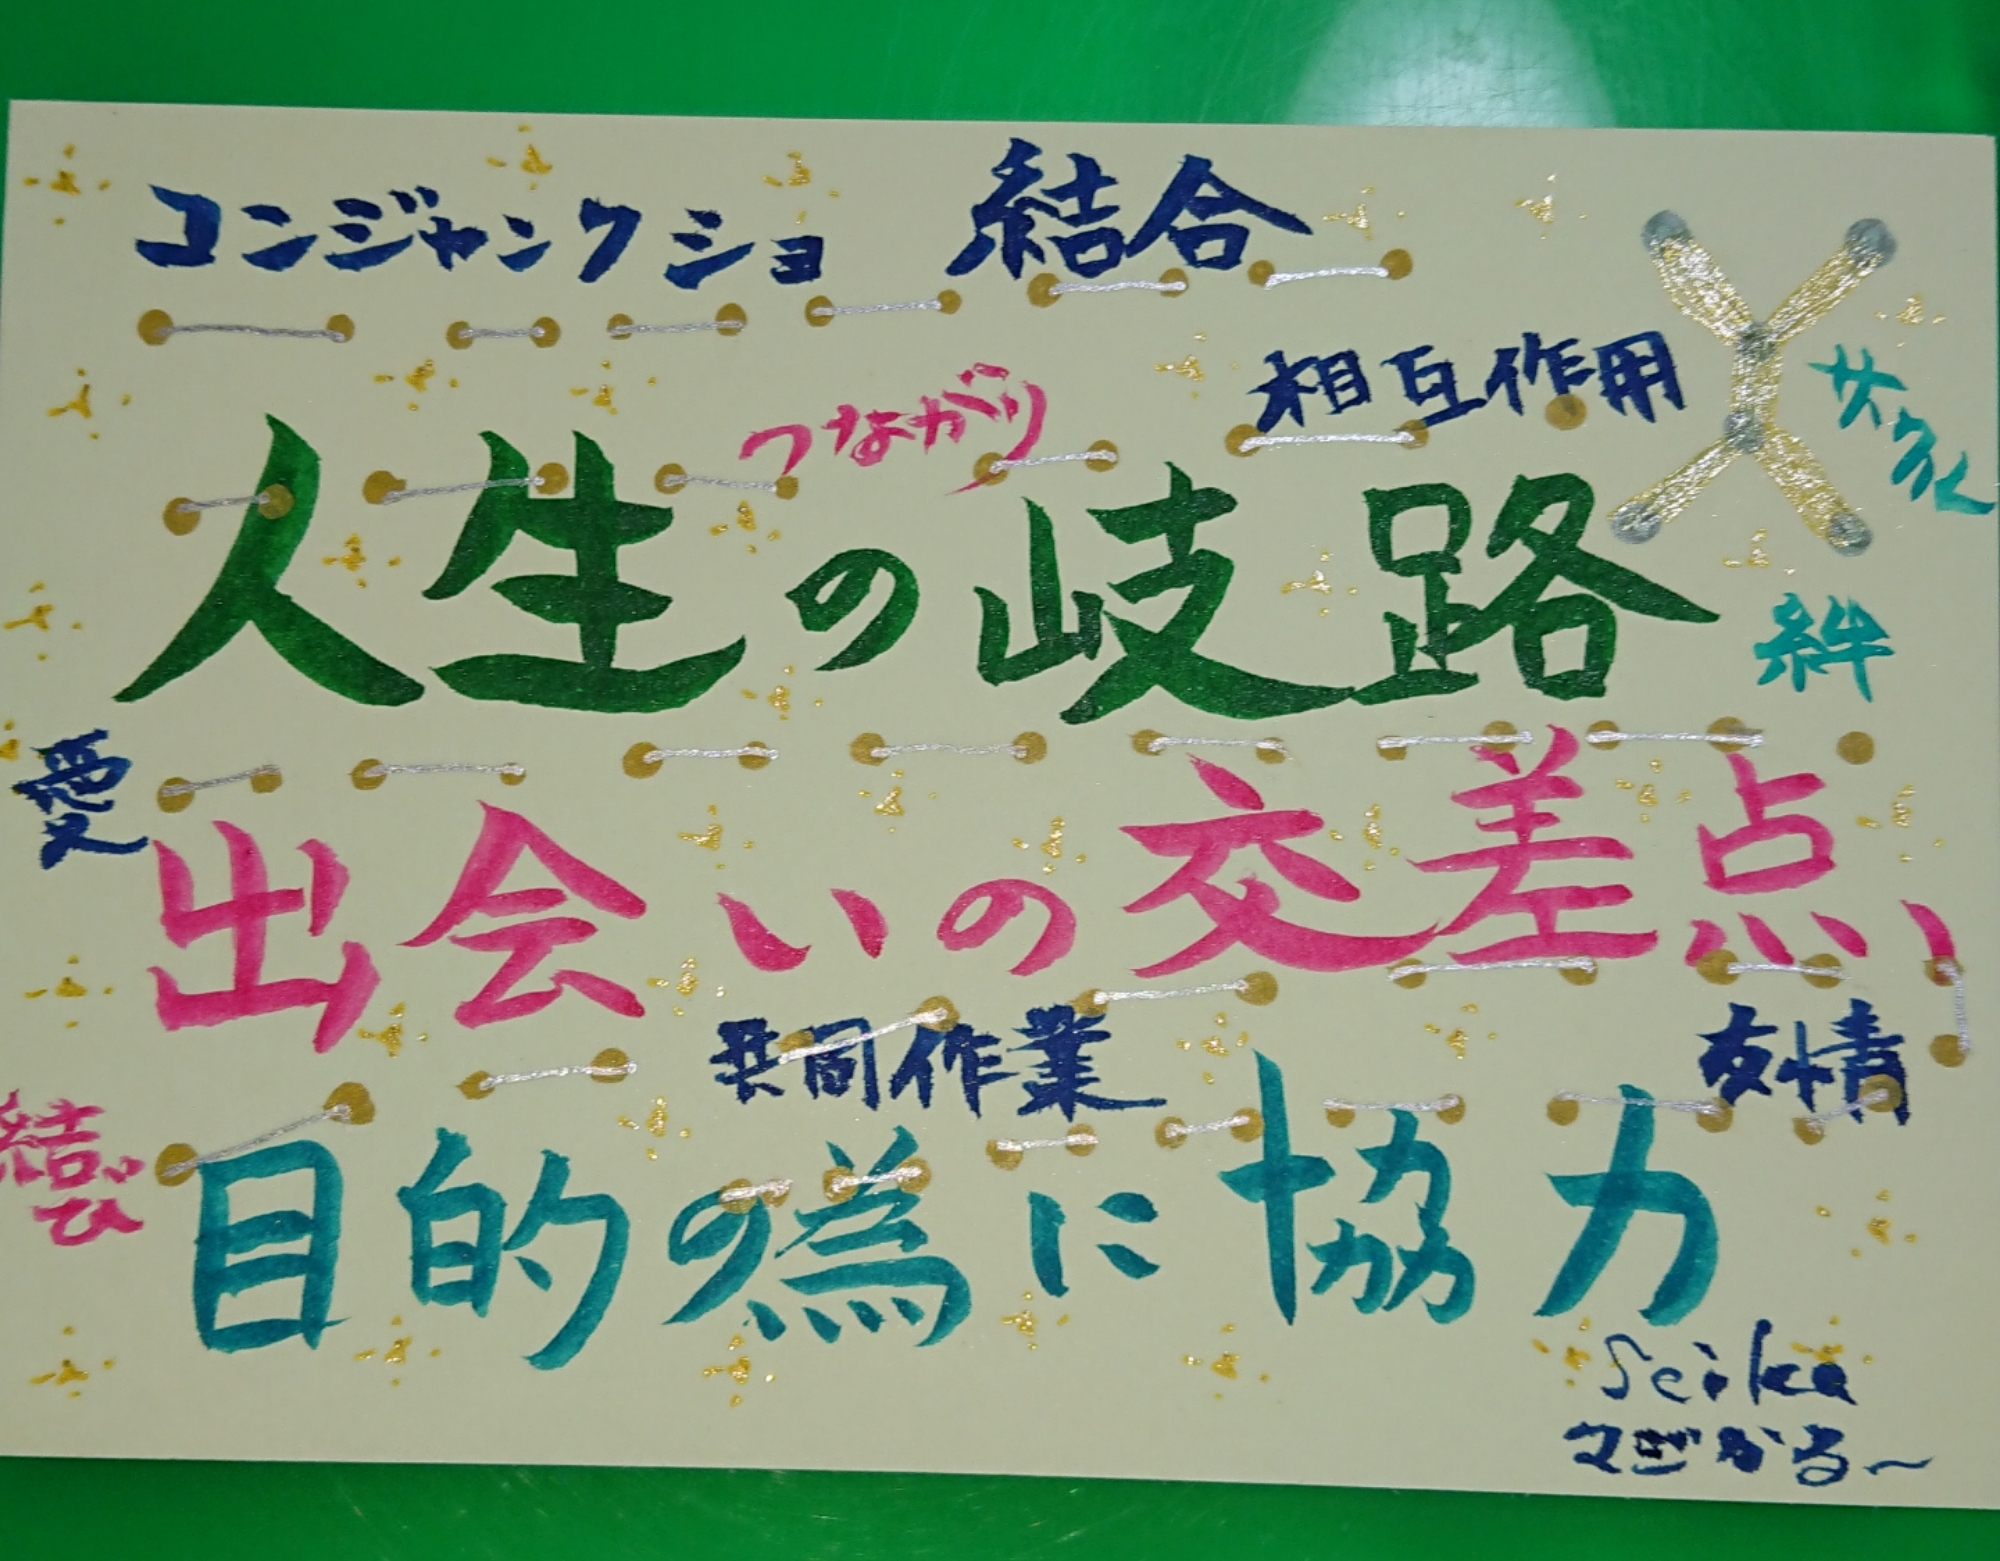 コンジャンクショ 結合
つながり 相互作用
サクル
人生の岐路
絆
愛
出会いの交差点
共同作業 友情
結び
目的の為に協力
Seika
マジかる〜